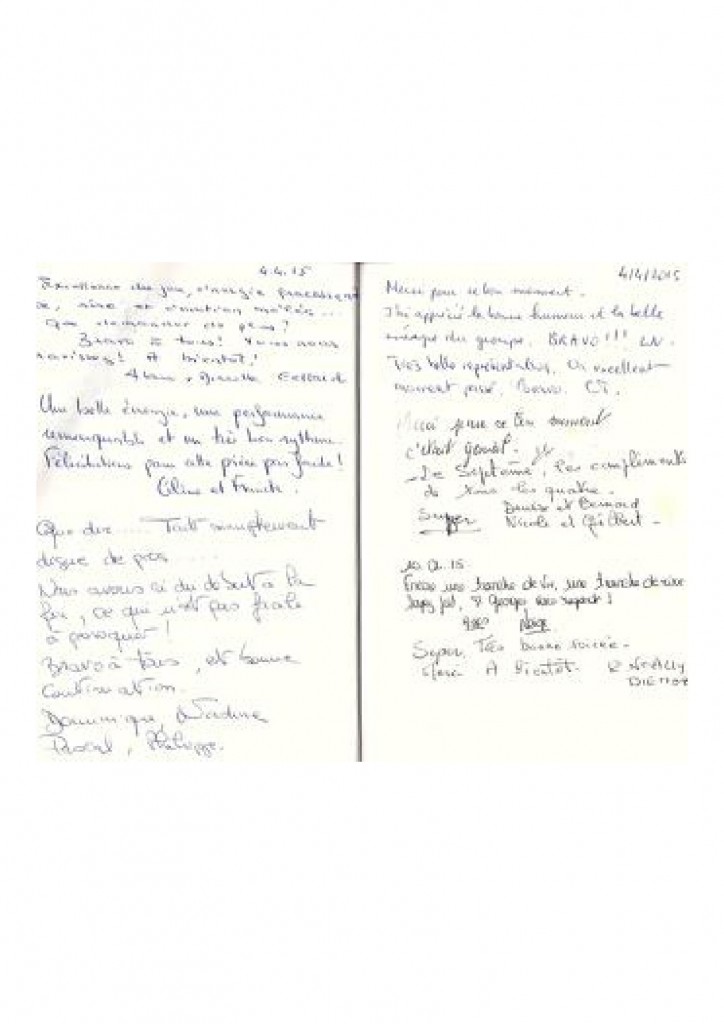 4.4.15
Excellence du jeu, énergie
rire et émotion mêlés...
Que demander de plus ?
Bravo à tous ! Vous nous
! A bientôt !
Une belle énergie, une performance
remarquable et un très bon rythme.
Félicitations pour cette pièce pas facile !
Céline et Franck.
Que dire..... Tout simplement
digne de pros .....
Nous avons ri du début à la
fin, ce qui n'est pas facile
à provoquer !
Bravo à tous, et bonne
continuation.
Dominique, Nadine
Pascal, Philippe.
4/4/2015
Merci pour ce bon moment.
J'ai apprécié la bonne humeur et la belle
énergie du groupe. BRAVO !!! LN.
Très belle représentation, Un excellent
moment passé. Bravo.
Merci pour ce bon moment
c'était génial.
De Septème, les compliments
de nous les quatre.
Super Denise et Bernard
Nicole et Gilbert -
Encore une tranche de vie, une tranche de rire
Super, Très bonne soirée -
A bientôt.